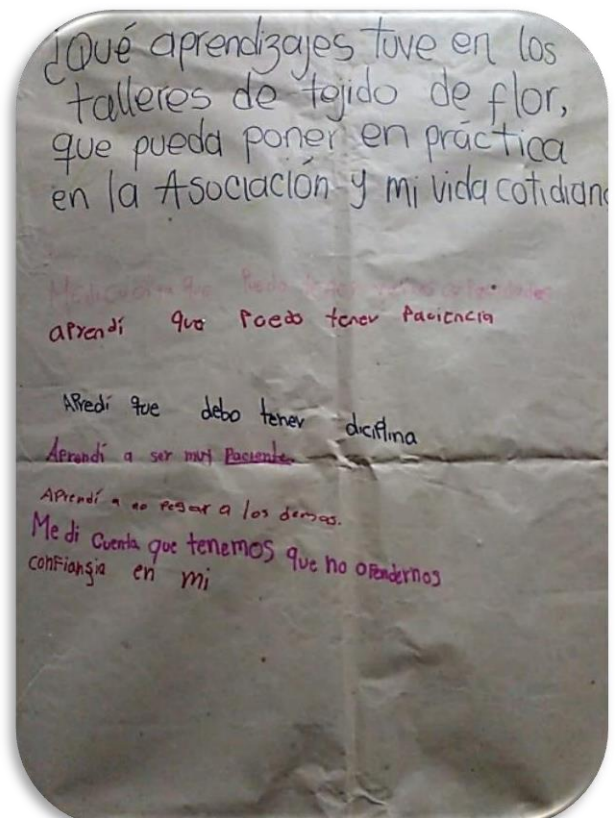 ¿Qué aprendizajes tuve en los
talleres de tejido de flor,
que pueda poner en práctica
en la Asociación y mi vida cotidiana
Me di cuenta que Puedo tener
aprendí que Poedo tener Paciencia
APredi que debo tener diciPlina
Aprendi a ser muy Paciente
APrendí a no pegar a los demas.
Me di cuenta que tenemos que no ofendernos
confiansia en mi